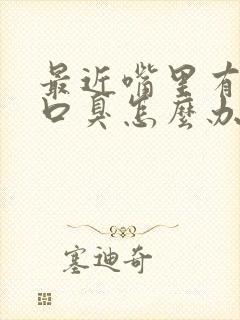 最近嘴里有
口臭怎麽办
塞迪奇